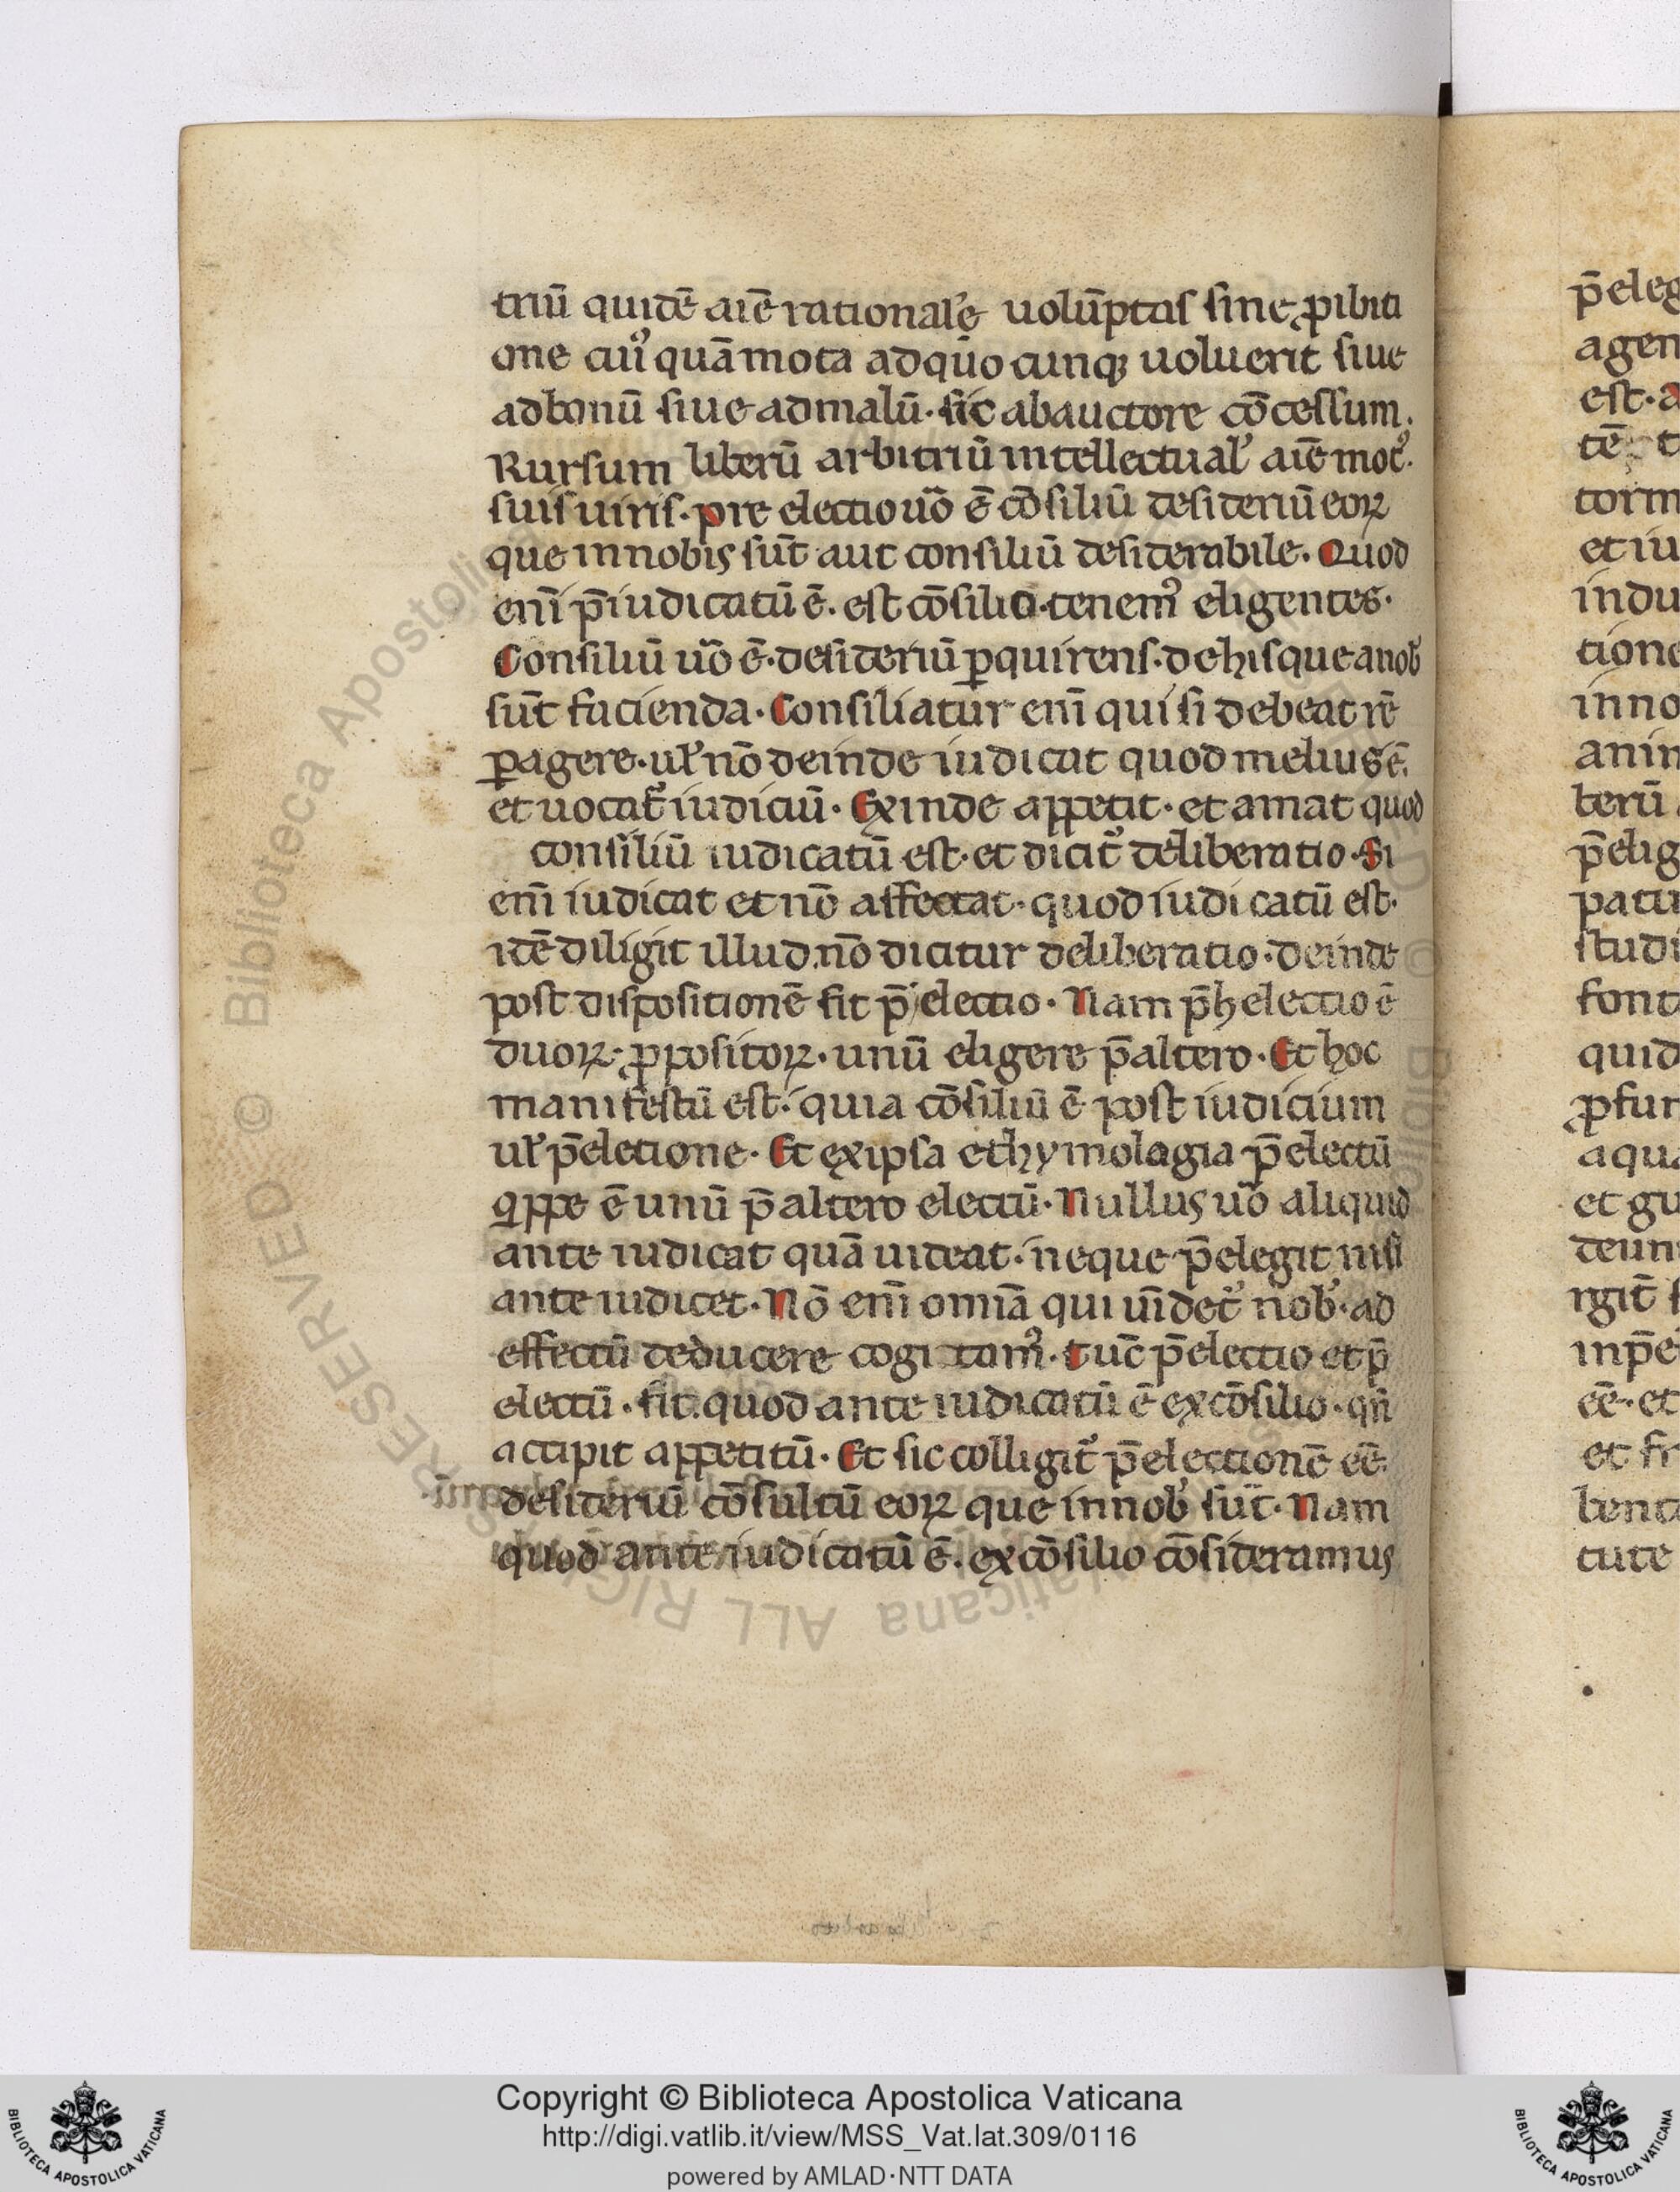 triū quidē aīe rationale uolūptas sine ꝓibiti
one cuiꝰ quā mota ad quocunqꝫ uoluerit siue
ad bonū siue ad malū. sic ab auctore cōcessum.
Rursum liberū arbitriū intellectual' aīe motꝰ.
suis uiris. pre electio uo̅ ē cōsiliū desideriū eoꝝ
que in nobis sūt aut consiliū desiderabile. Quod
eni̅ p̄iudicatū ē. est cōsilio. tenemꝰ eligentes.
Consiliū uo̅ ē. desideriū ꝑquirens. de his que a nob'
sūt facienda. Consiliatur eni̅ qui si debeat rē
ꝑagere. ul' nō deinde iudicat quod melius ē.
et uocat' iudiciū. Exinde appetit. et amat quod
consiliū iudicatū est. et dicit' deliberatio. Si
eni̅ iudicat et nō affectat. quod iudicatū est.
idē diligit illud nō dicitur deliberatio. deinde
post dispositionē fit p̄electio. Nam p̄ħ electio ē
duoꝝ ꝓpositoꝝ. unū eligere p̄ altero. Et hoc
manifestū est. quia cōsiliū ē post iudicium
ul' p̄eletione. Et ex ipsa ethymolagia p̄electū
qppe ē unū p̄ altero electū. Nullus uo̅ aliquid
ante iudicat quā uideat. neque p̄elegit nisi
ante iudicet. Nō eni̅ omīa qui uīdet' nob'. ad
effectū deducere cogitamꝰ. tūc p̄electio et p̄
electū. fit. quod ante iudicatū ē ex cōsilio. qn̄
accipit appetitū. Et sic colligit' p̄electionē eē.
desideriū cōsultū eoꝝ que in nob' sūt. Nam
quod ante iudicatū ē. ex cōsilio cōsideramus
p̄eleg
agen
est. a
tē
torm
et iu
indu
tione
inno
anim
berū
p̄elig
patu
studi
font
quid
ꝓfun
aqua
et gu
deum
rgit̄
inp̄e
eē. et
et fr
bent
tute
© Biblioteca Apostolica Vaticana ALL RIGHTS RESERVED
Copyright © Biblioteca Apostolica Vaticana
http://digi.vatlib.it/view/MSS_Vat.lat.309/0116
powered by AMLAD·NTT DATA
BIBLIOTECA APOSTOLICA VATICANA
BIBLIOTECA APOSTOLICA VATICANA